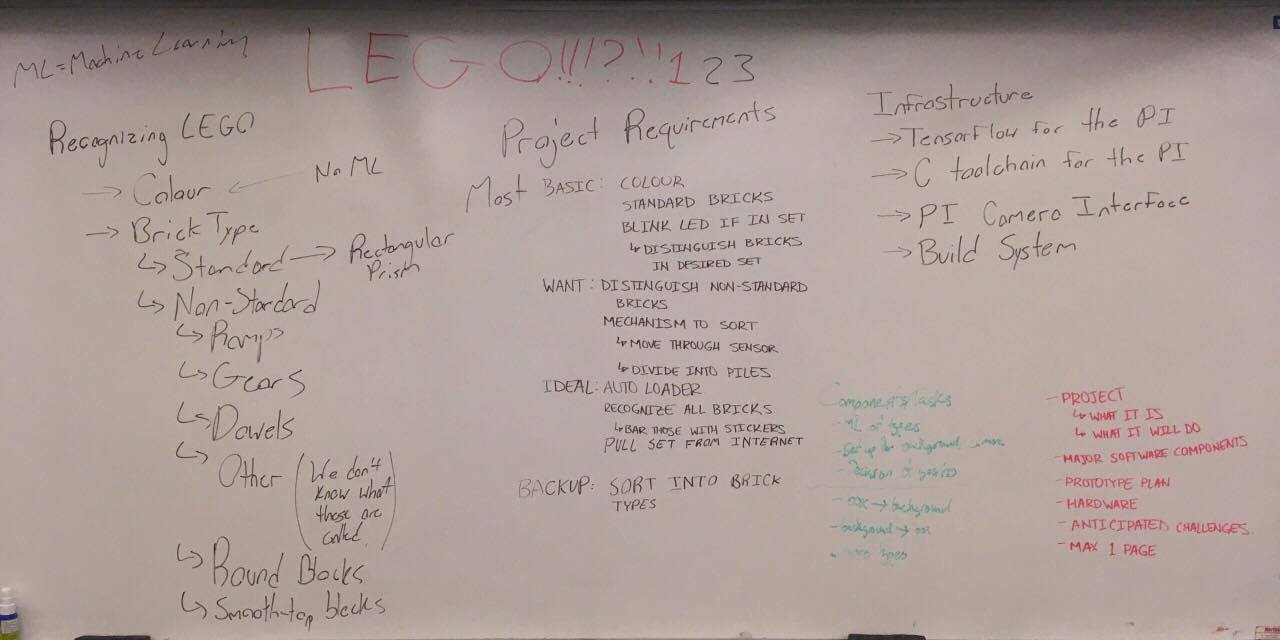 ML = Machine Learning
LEGO!!!?!!123
Recognizing LEGO
→ Colour ← No ML
→ Brick Type
↳ Standard → Rectangular
Prism
↳ Non-Standard
↳ Ramps
↳ Gears
↳ Dowels
↳ Other (We don't
know what
these are
called)
↳ Round Blocks
↳ Smooth-top blocks
Project Requirements
Most BASIC: COLOUR
STANDARD BRICKS
BLINK LED IF IN SET
↳ DISTINGUISH BRICKS
IN DESIRED SET
WANT: DISTINGUISH NON-STANDARD
BRICKS
MECHANISM TO SORT
↳ MOVE THROUGH SENSOR
↳ DIVIDE INTO PILES
IDEAL: AUTO LOADER
RECOGNIZE ALL BRICKS
↳ BAR THOSE WITH STICKERS
PULL SET FROM INTERNET
BACKUP: SORT INTO BRICK
TYPES
Infrastructure
→ Tensorflow for the PI
→ C toolchain for the PI
→ PI Camera Interface
→ Build System
Components/Tasks
- ML of types
- Set up for background
- of yes/no
→ background
- background →
types
- PROJECT
↳ WHAT IT IS
↳ WHAT IT WILL DO
- MAJOR SOFTWARE COMPONENTS
- PROTOTYPE PLAN
- HARDWARE
- ANTICIPATED CHALLENGES.
- MAX 1 PAGE